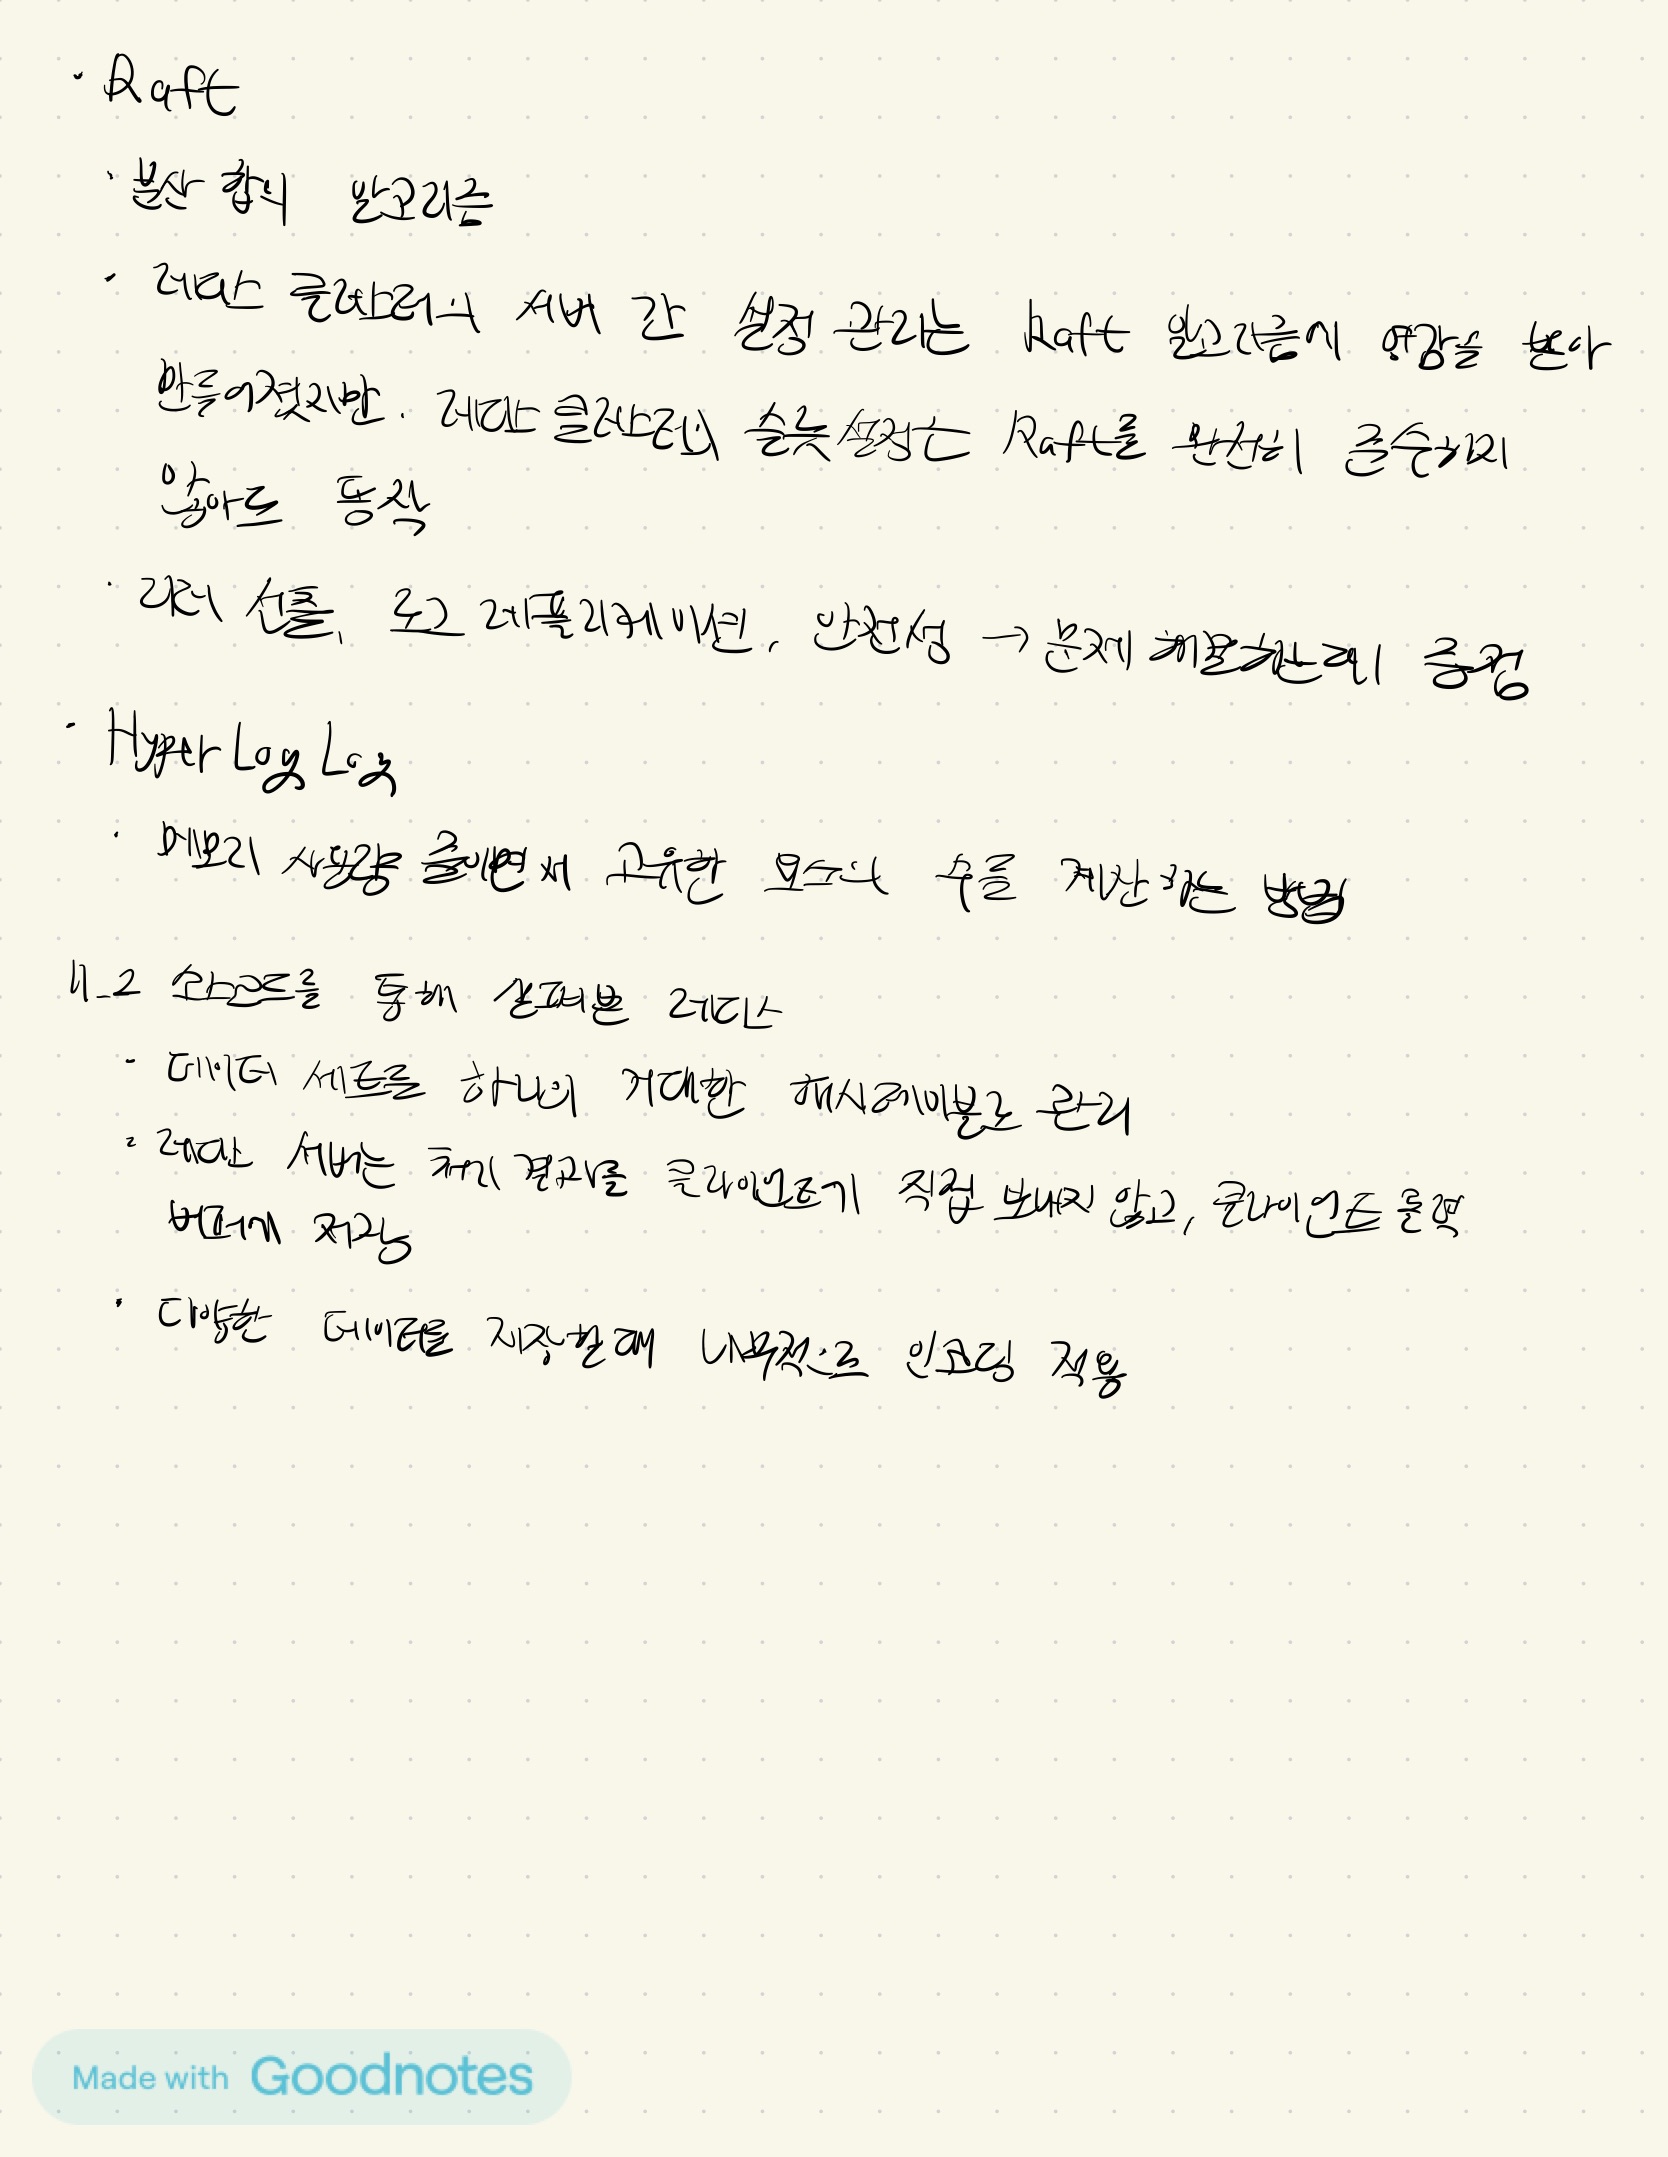 · Raft
· 분산 합의 알고리즘
· 레디스 클러스터의 서버 간 설정 관리는 Raft 알고리즘에 영감을 받아
만들어졌지만, 레디스 클러스터의 슬롯 설정은 Raft를 완전히 준수하지
않아도 동작
· 리더 선출, 로그 레플리케이션, 안전성 → 문제 해결하는데 중점
· HyperLogLog
· 메모리 사용량 줄이면서 고유한 요소의 수를 계산하는 방법
11_2 소스코드를 통해 살펴본 레디스
· 데이터 세트를 하나의 거대한 해시테이블로 관리
· 레디스 서버는 처리 결과를 클라이언트에 직접 보내지 않고, 클라이언트 출력
버퍼에 저장
· 다양한 데이터를 저장할 때 내부적으로 인코딩 적용
Made with Goodnotes